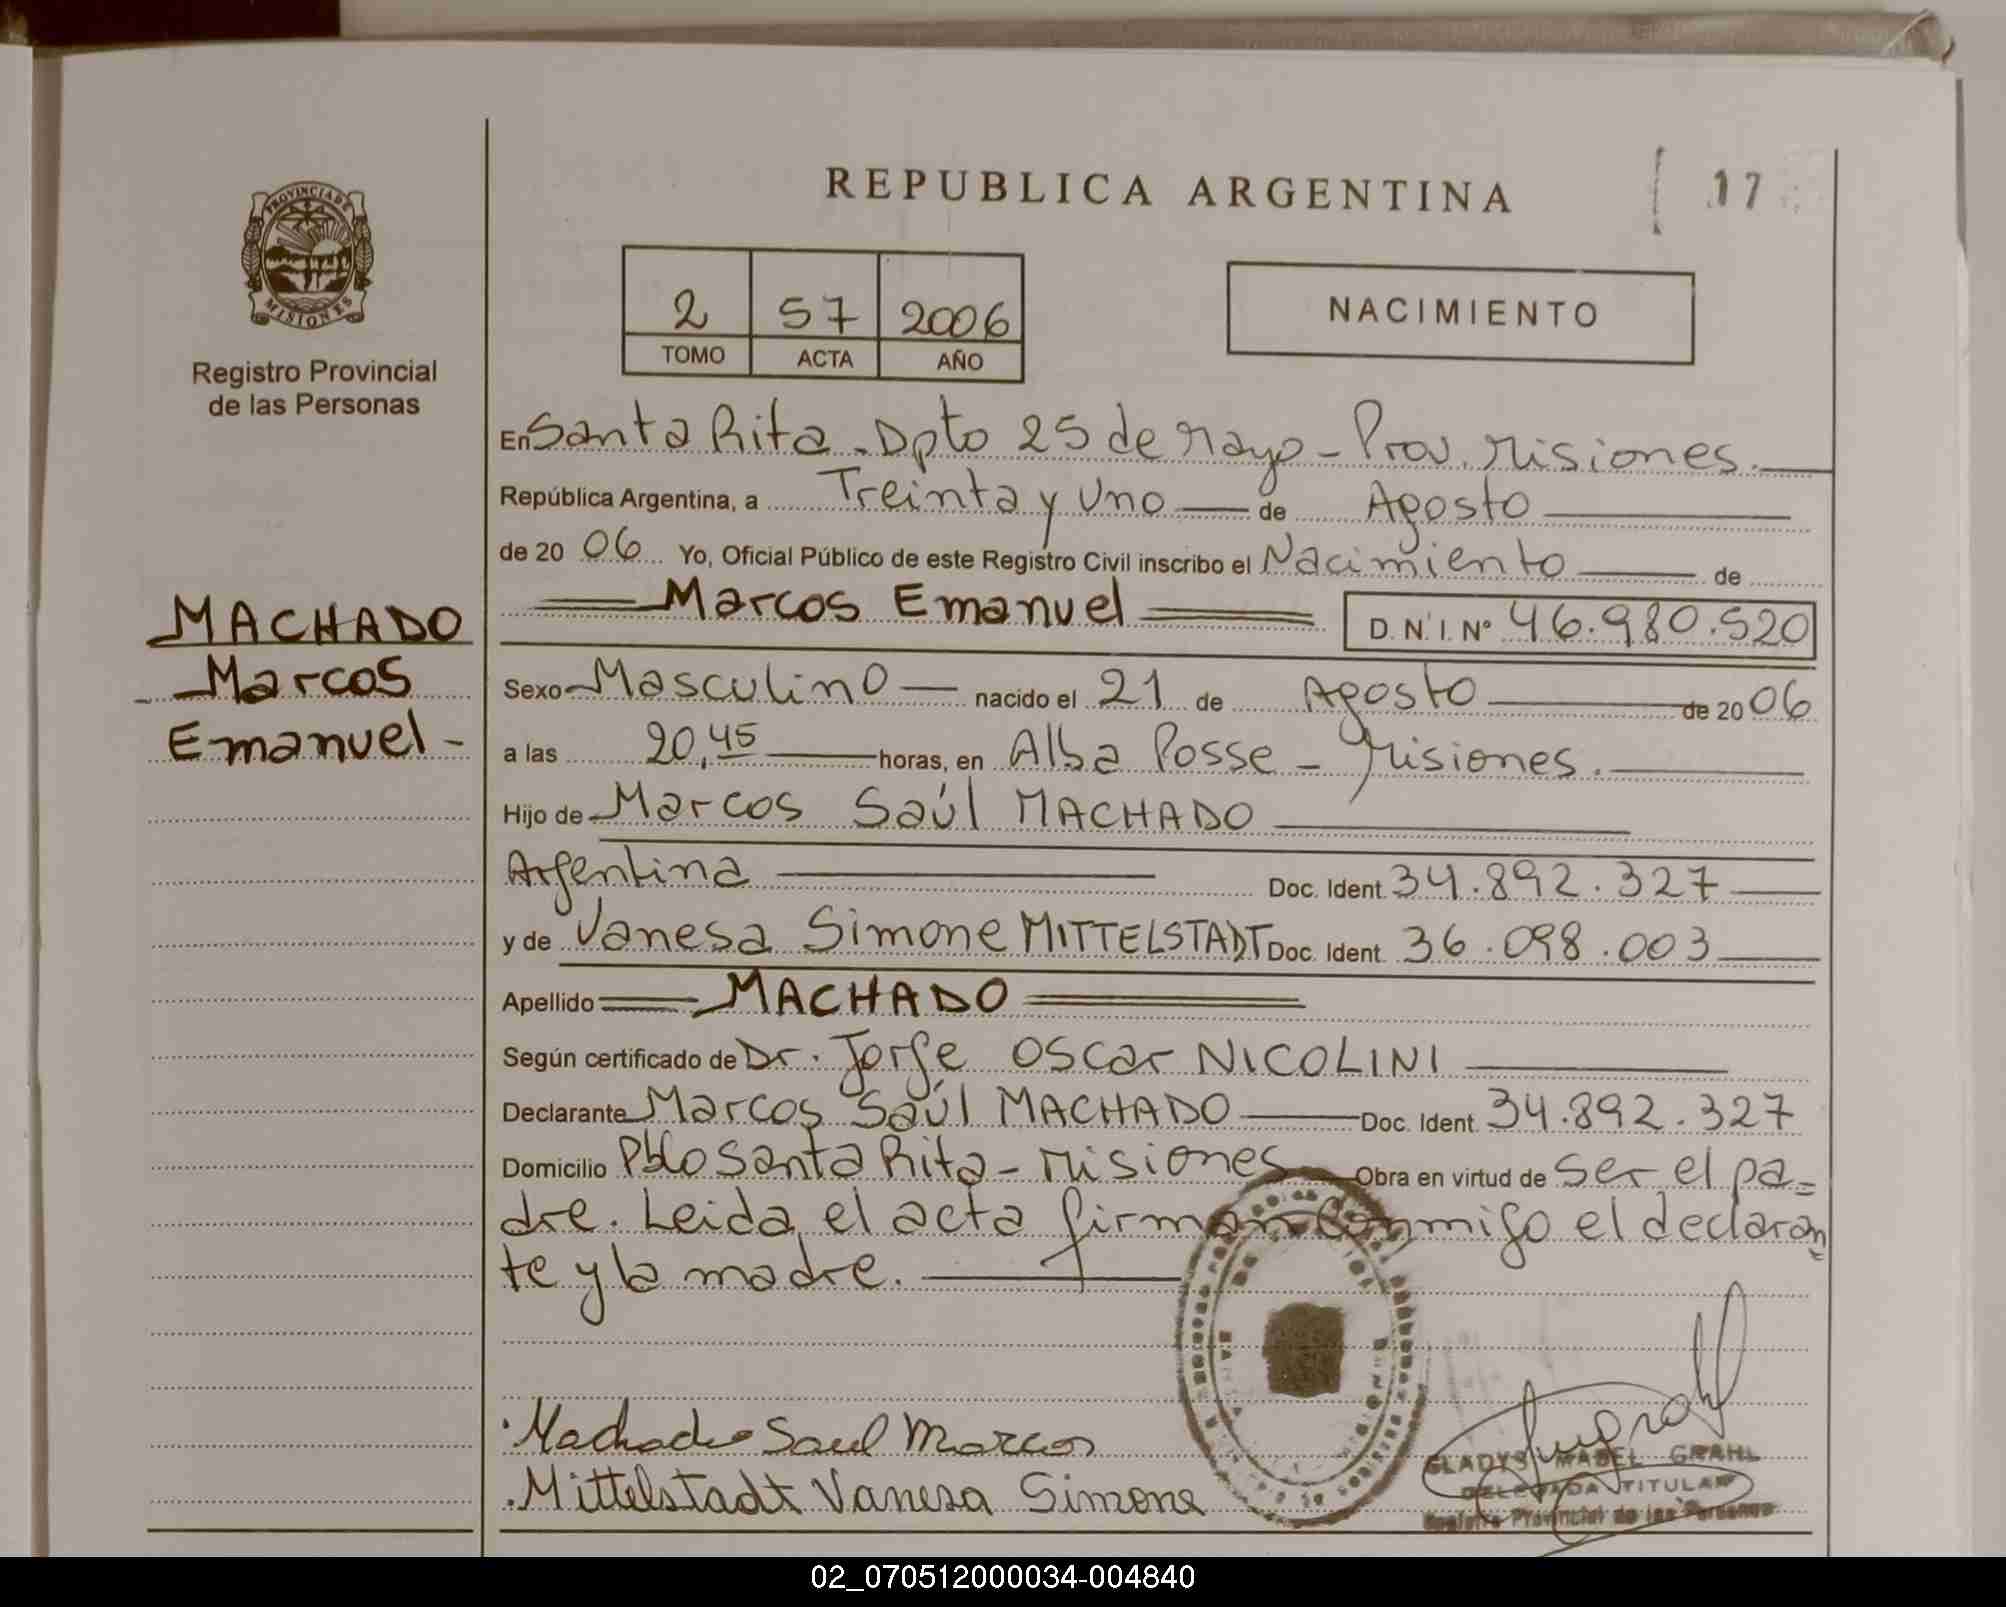 REPUBLICA ARGENTINA
17
PROVINCIA DE
MISIONES
Registro Provincial
de las Personas
2 57 2006
TOMO ACTA AÑO
NACIMIENTO
En Santa Rita. Dpto 25 de Mayo - Prov. Misiones.
República Argentina, a Treinta y Uno de Agosto
de 20 06 Yo, Oficial Público de este Registro Civil inscribo el Nacimiento de
Marcos Emanuel D.N.I. Nº 46.980.520
MACHADO
Marcos
Emanuel -
Sexo Masculino nacido el 21 de Agosto de 20 06
a las 20,45 horas, en Alba Posse - Misiones.
Hijo de Marcos Saúl MACHADO
Argentina Doc. Ident. 34.892.327
y de Vanesa Simone MITTELSTADT Doc. Ident. 36.098.003
Apellido MACHADO
Según certificado de Dr. Jorge Oscar NICOLINI
Declarante Marcos Saúl MACHADO Doc. Ident. 34.892.327
Domicilio Pblo Santa Rita - Misiones Obra en virtud de Ser el pa=
dre. Leida el acta firman conmigo el declaran=
te y la madre.
Machado Saul Marcos
Mittelstadt Vanesa Simone
GLADYS MABEL GRAHL
DELEGADA TITULAR
Registro Provincial de las Personas
02_070512000034-004840